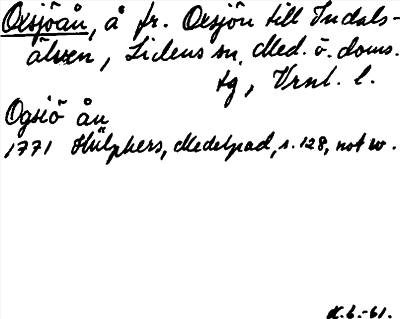 Oxsjöån, å fr. Oxsjön till Indals-
älven, Lidens sn, Med. ö. doms.
tg, Vrnl. l.
Ogsiö ån
1771 Hülphers, Medelpad, s. 128, not w.
K.G.-61.